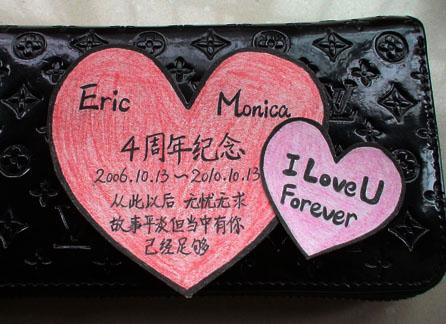 Eric Monica
4周年纪念
2006.10.13～2010.10.13
从此以后 无忧无求
故事平淡但当中有你
已经足够
I Love U
Forever